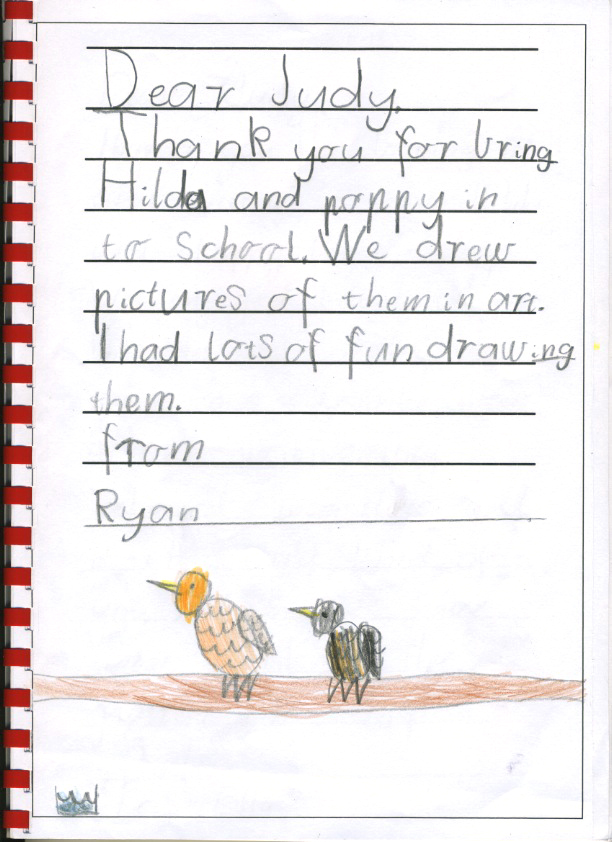 Dear Judy,
Thank you for bring
Hilda and poppy in
to School. We drew
pictures of them in art.
I had lots of fun drawing
them.
from
Ryan